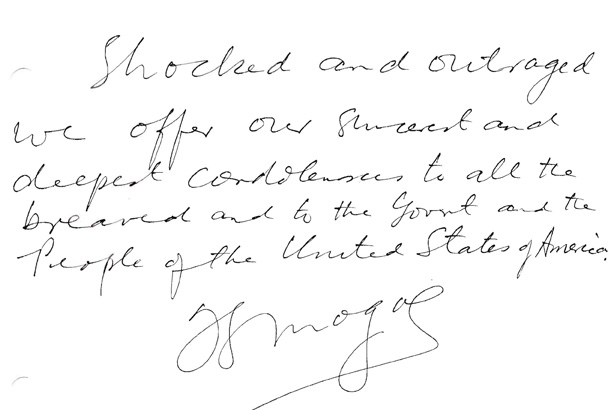 Shocked and outraged
we offer our sincerest and
deepest condolences to all the
breaved and to the Govert and the
People of the United States of America.